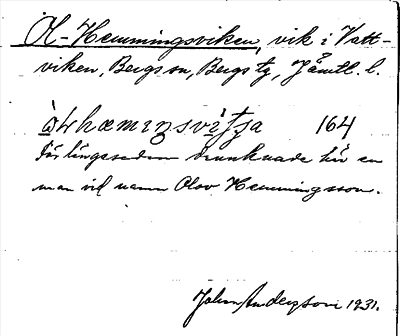 Ol-Hemmingsviken, vik i Vatt-
viken, Bergs sn, Bergs tg, Jämtl. l.
164
För längesedan drunknade här en
man vid namn Olov Hemmingsson.
John Anderson 1931.